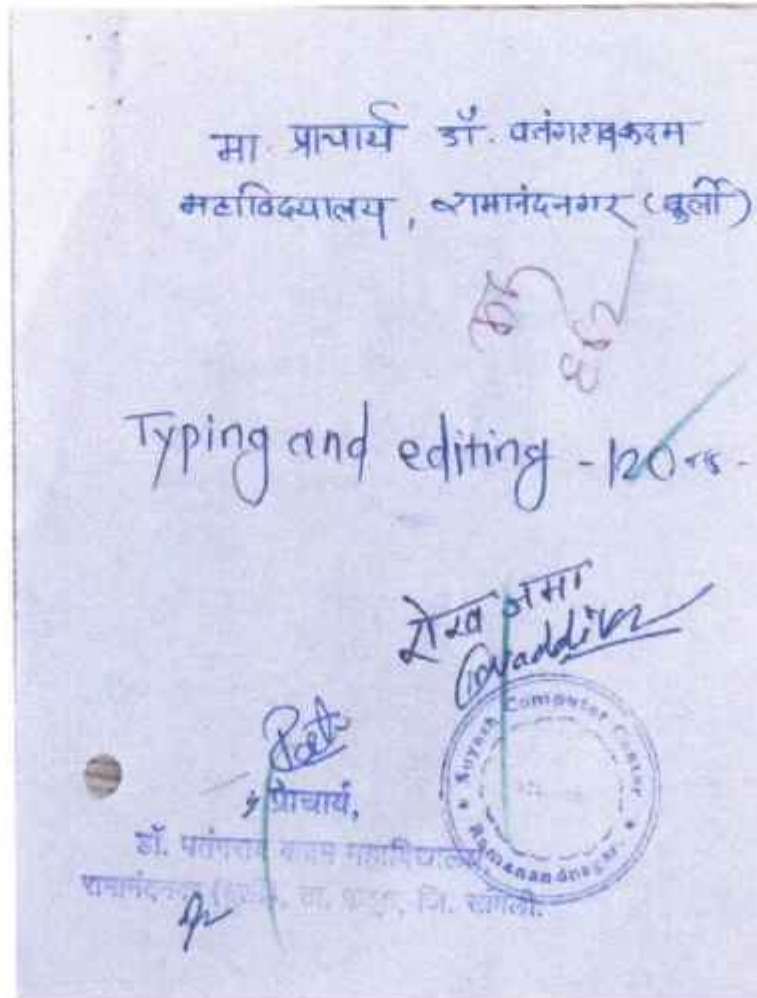 मा. प्राचार्य डॉ. पतंगरावकदम
महाविद्यालय, रामानंदनगर (बुर्ली)
Typing and editing - 120
रोख जमा
Suyash Computer Center
Ramanandnagar.
प्राचार्य,
डॉ. पतंगराव कदम महाविद्यालय
रामानंदनगर (बुर्ली), ता. पलूस, जि. सांगली.